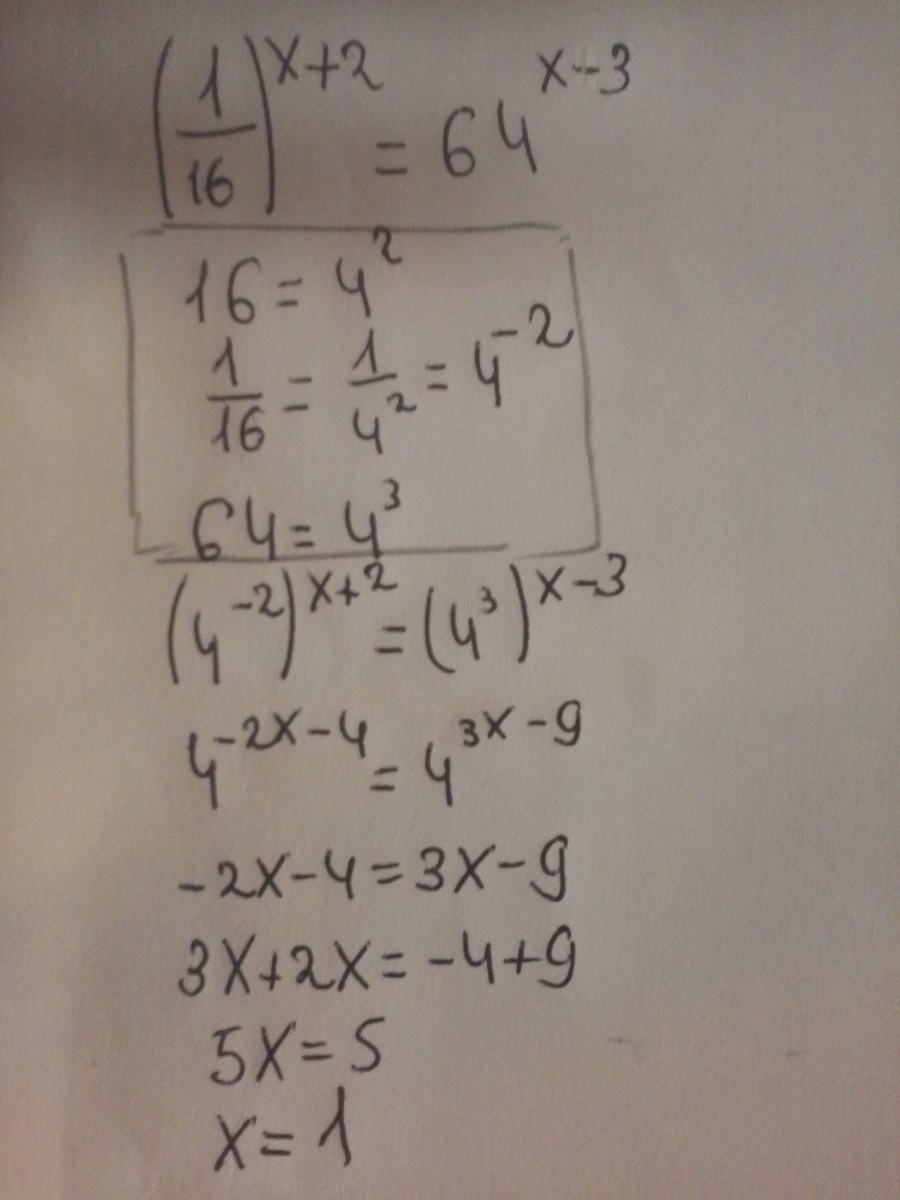 (1/16)^(x+2) = 64^(x-3)
16 = 4^2
1/16 = 1/4^2 = 4^-2
64 = 4^3
(4^-2)^(x+2) = (4^3)^(x-3)
4^(-2x-4) = 4^(3x-9)
-2x-4=3x-9
3x+2x=-4+9
5x=5
x=1